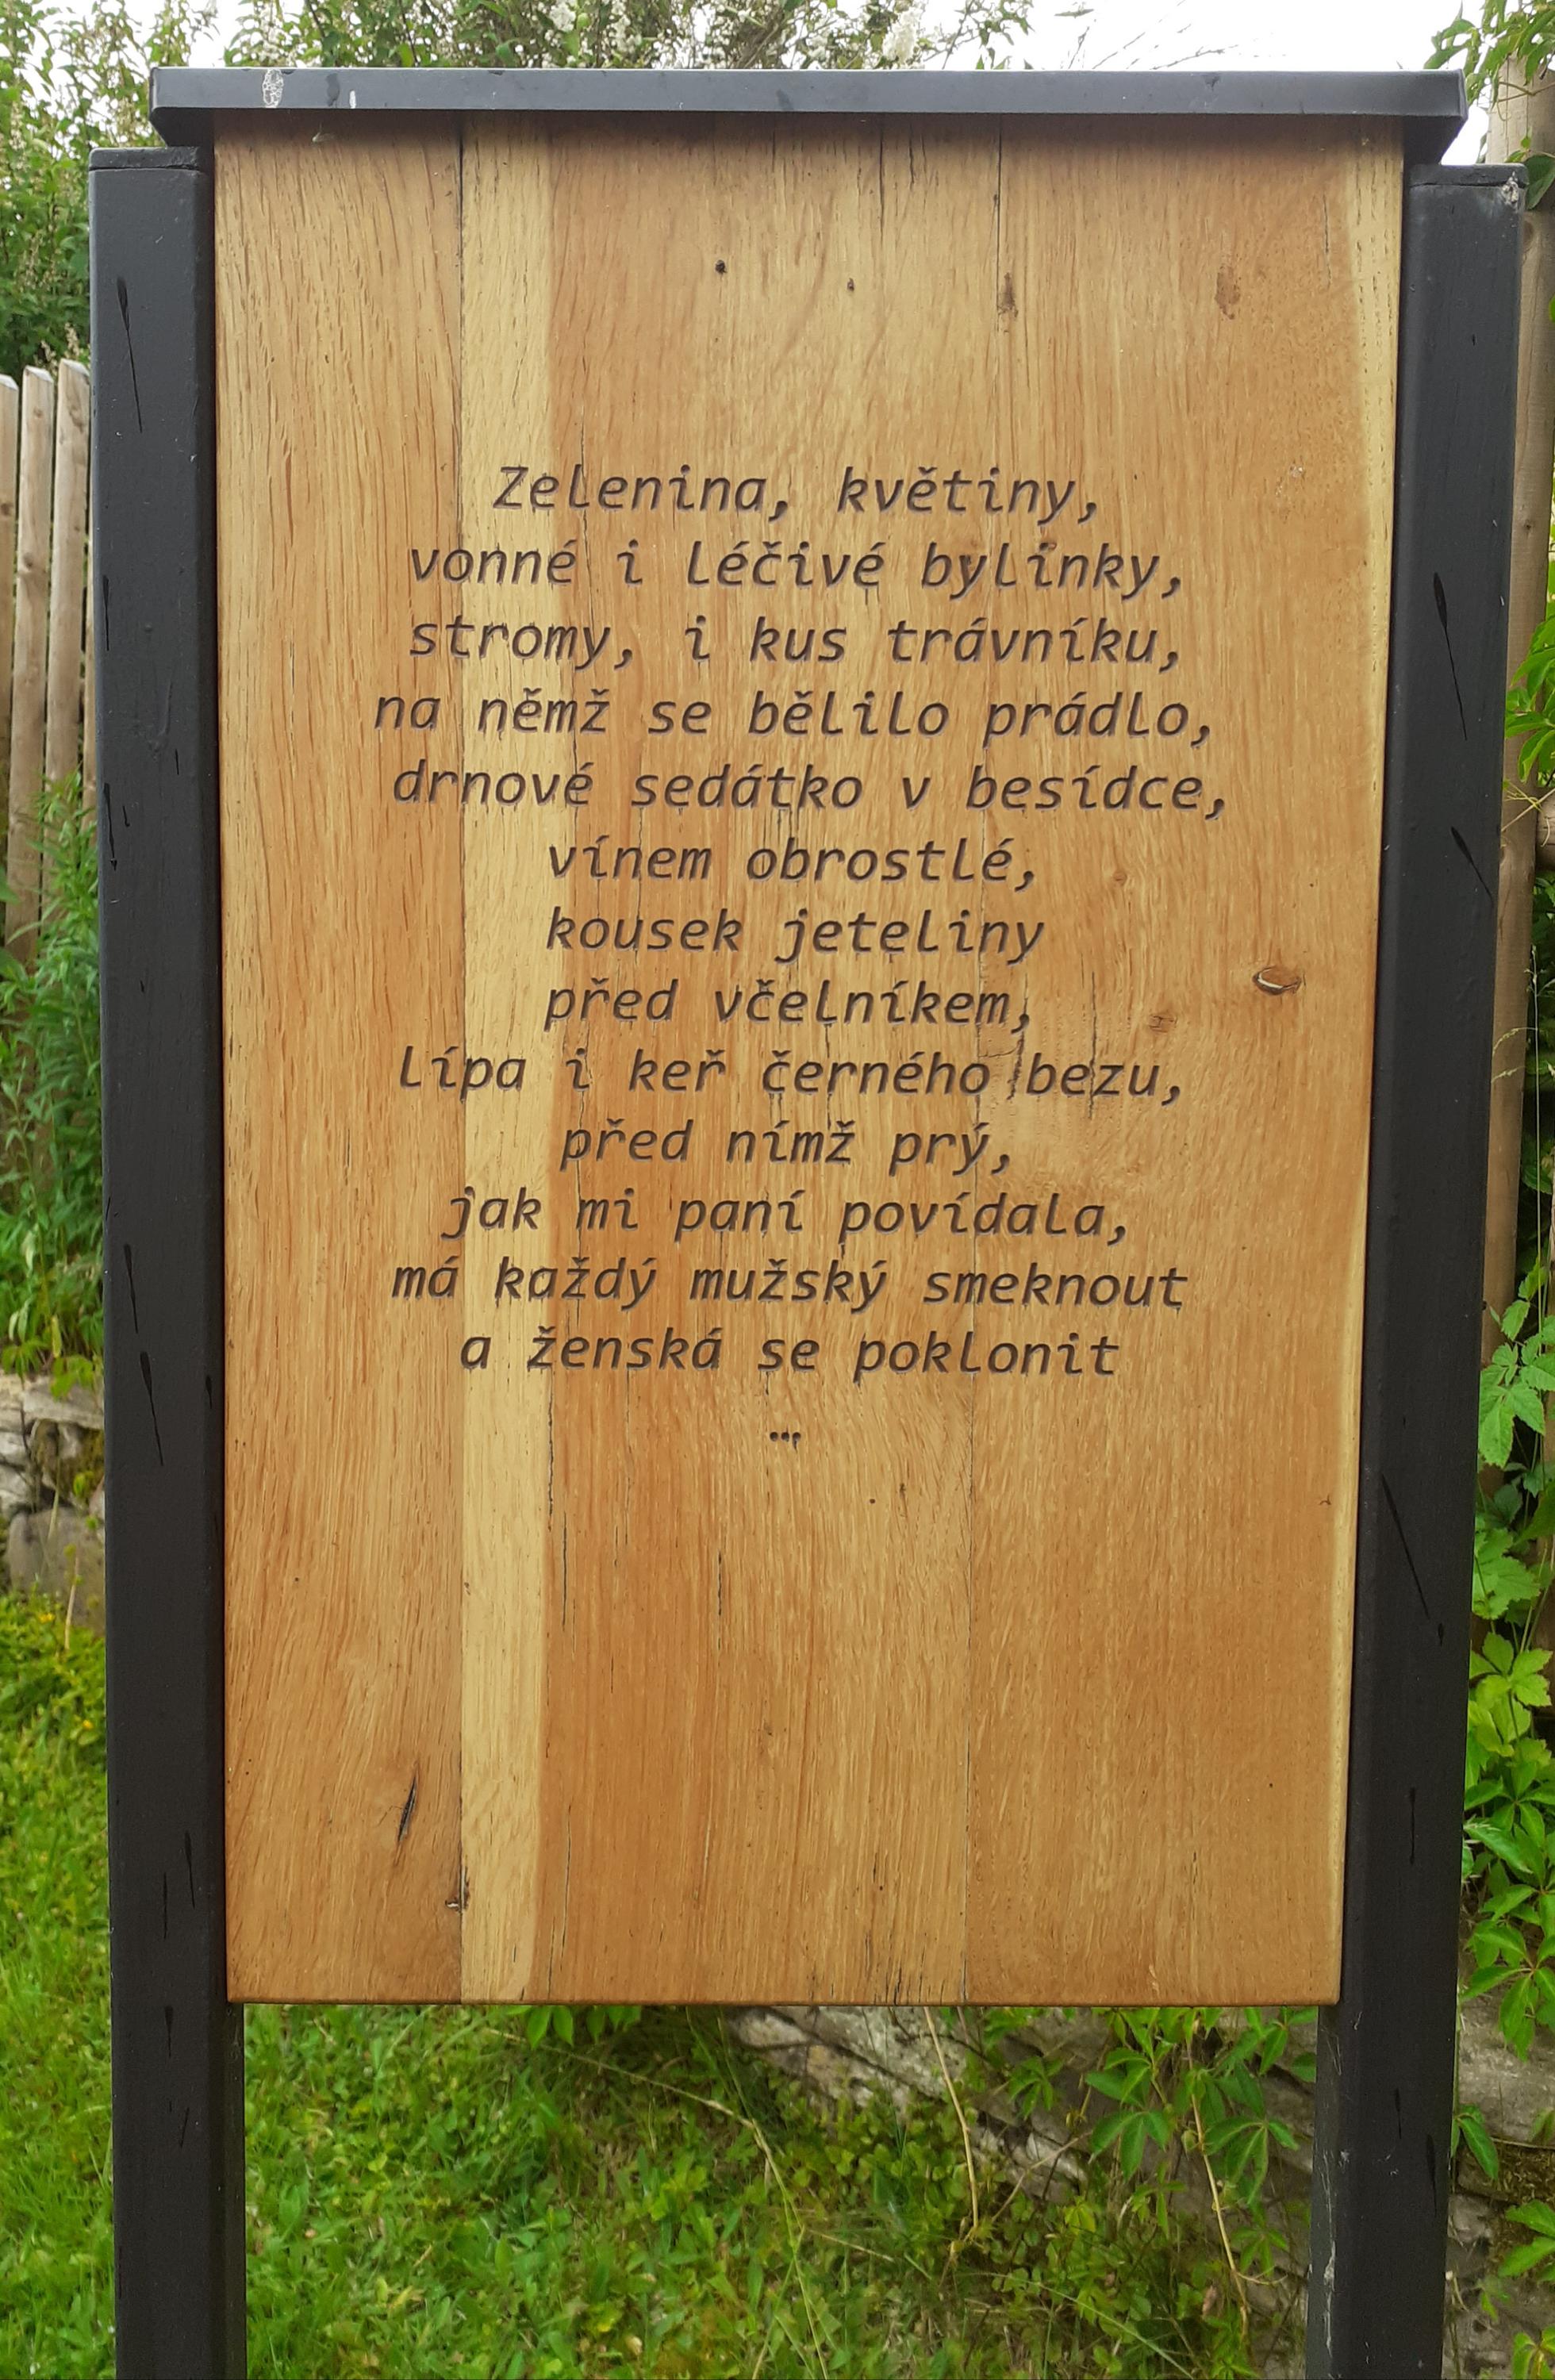 Zelenina, květiny,
vonné i léčivé bylinky,
stromy, i kus trávníku,
na němž se bělilo prádlo,
drnové sedátko v besídce,
vínem obrostlé,
kousek jeteliny
před včelníkem,
lípa i keř černého bezu,
před nímž prý,
jak mi paní povídala,
má každý mužský smeknout
a ženská se poklonit
…